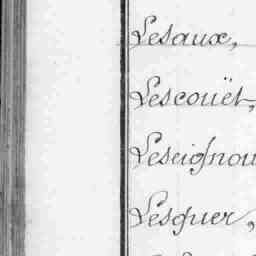 Lesaux,
Lescouët,
Leseignou
Lesquer,